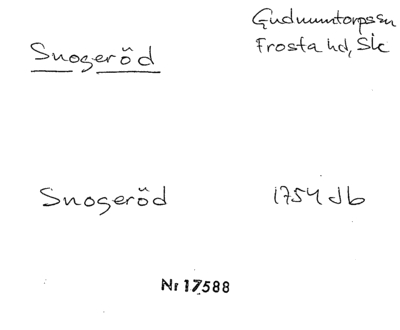 Gudmuntorpssn
Snogeröd
Frosta hd, Sk
Snogeröd 1754 Jb
Nr 17588